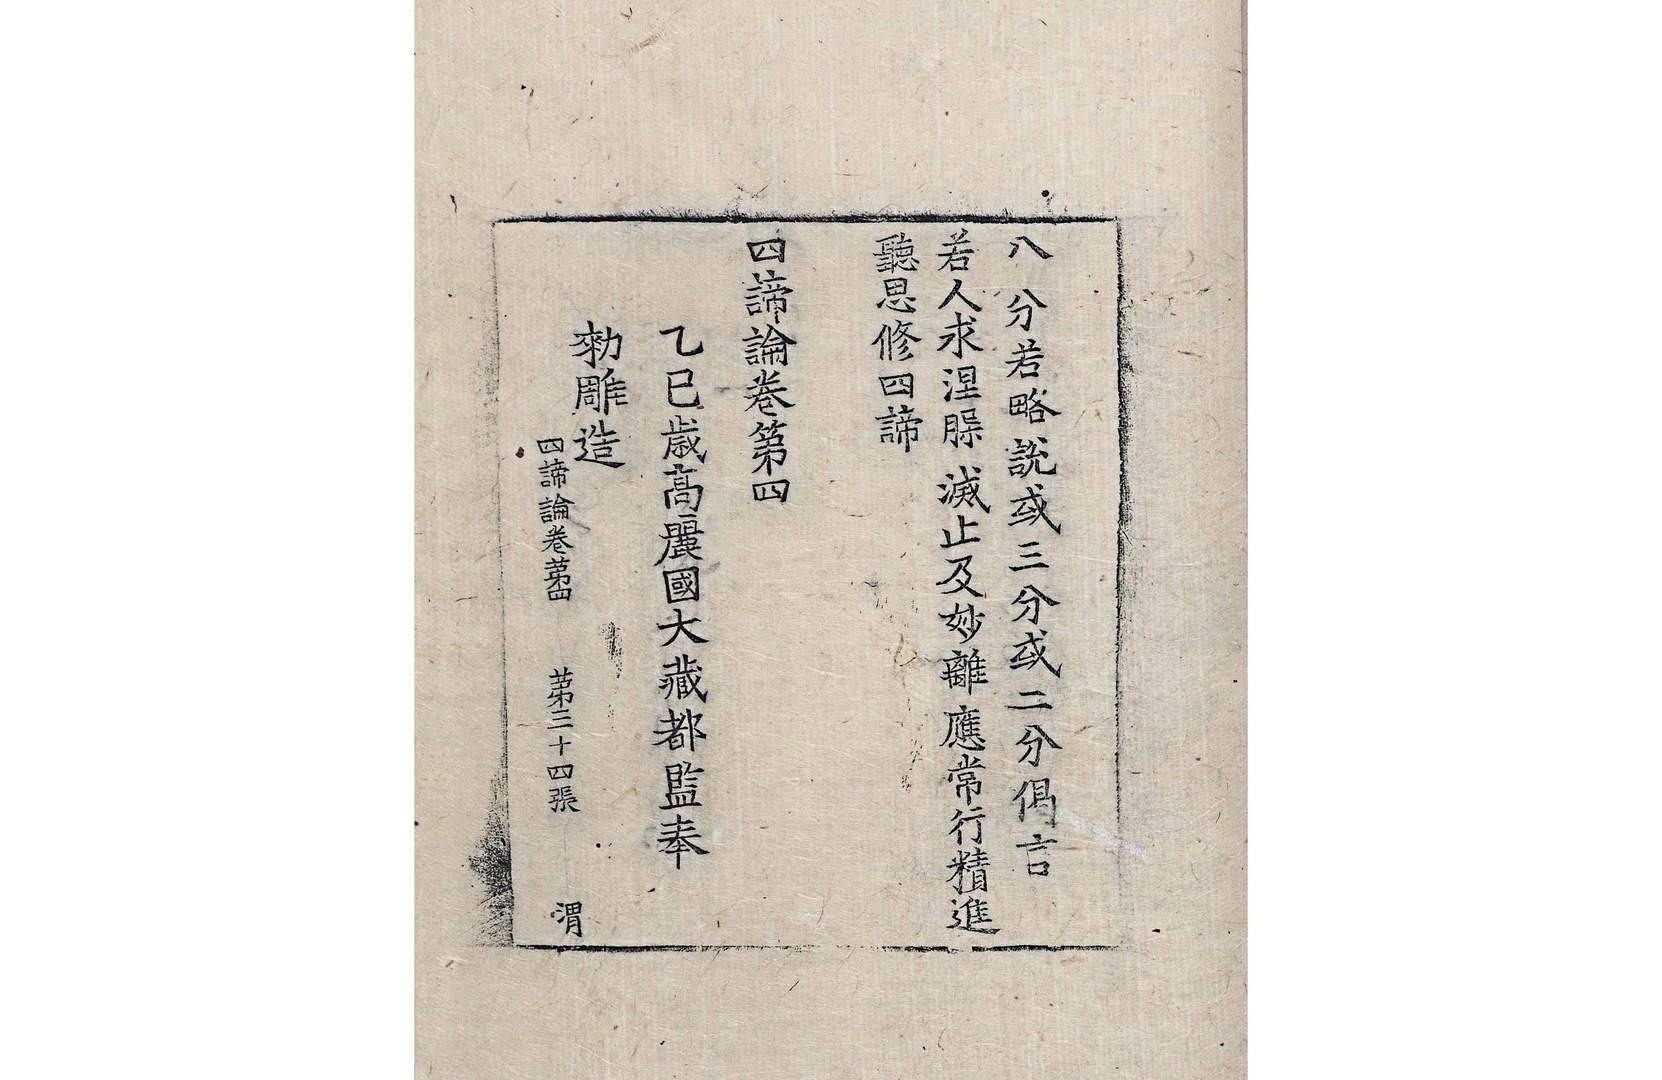 八分若略說或三分或二分偈言
若人求涅槃滅止及妙離應常行精進
聽思修四諦
四諦論卷第四
乙巳歲高麗國大藏都監奉
勑雕造
四諦論卷苐四 苐三十四張 渭